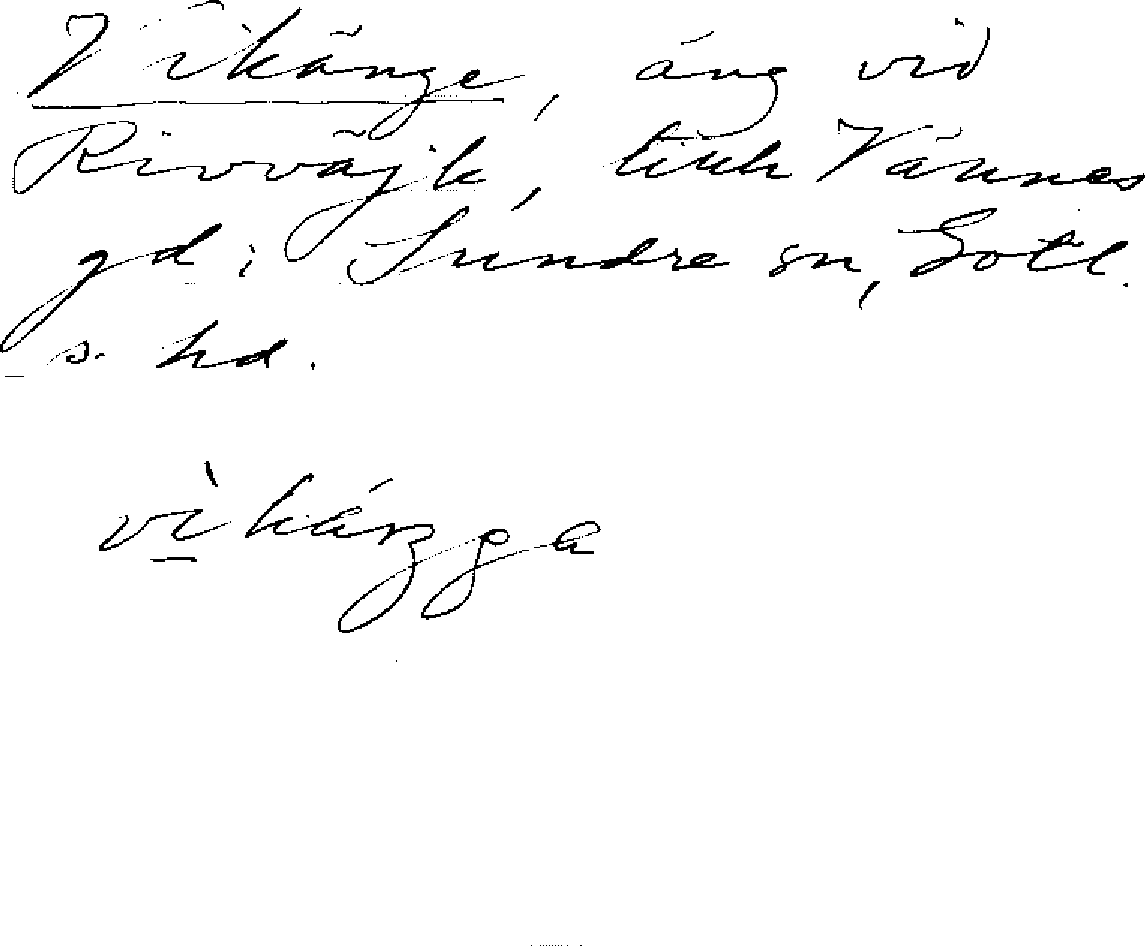 Vikänge, äng vid
Rivväjk, tikk Vännes
gd i Sundre sn, Gotl.
s. hd.
vìkáŋga